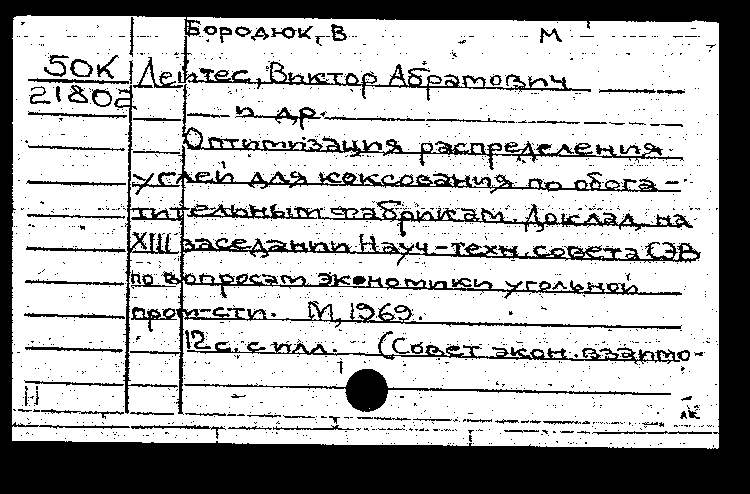 Бородюк, В М
50К Лейтес, Виктор Абрамович
21802 и др.
Оптимизация распределения
углей для коксования по обога-
тительным фабрикам. Доклад на
XIII заседании Науч.-техн. совета СЭВ
по вопросам экономики угольной
пром-сти. М, 1969.
12 с. с илл. (Совет экон. взаимо-
Н